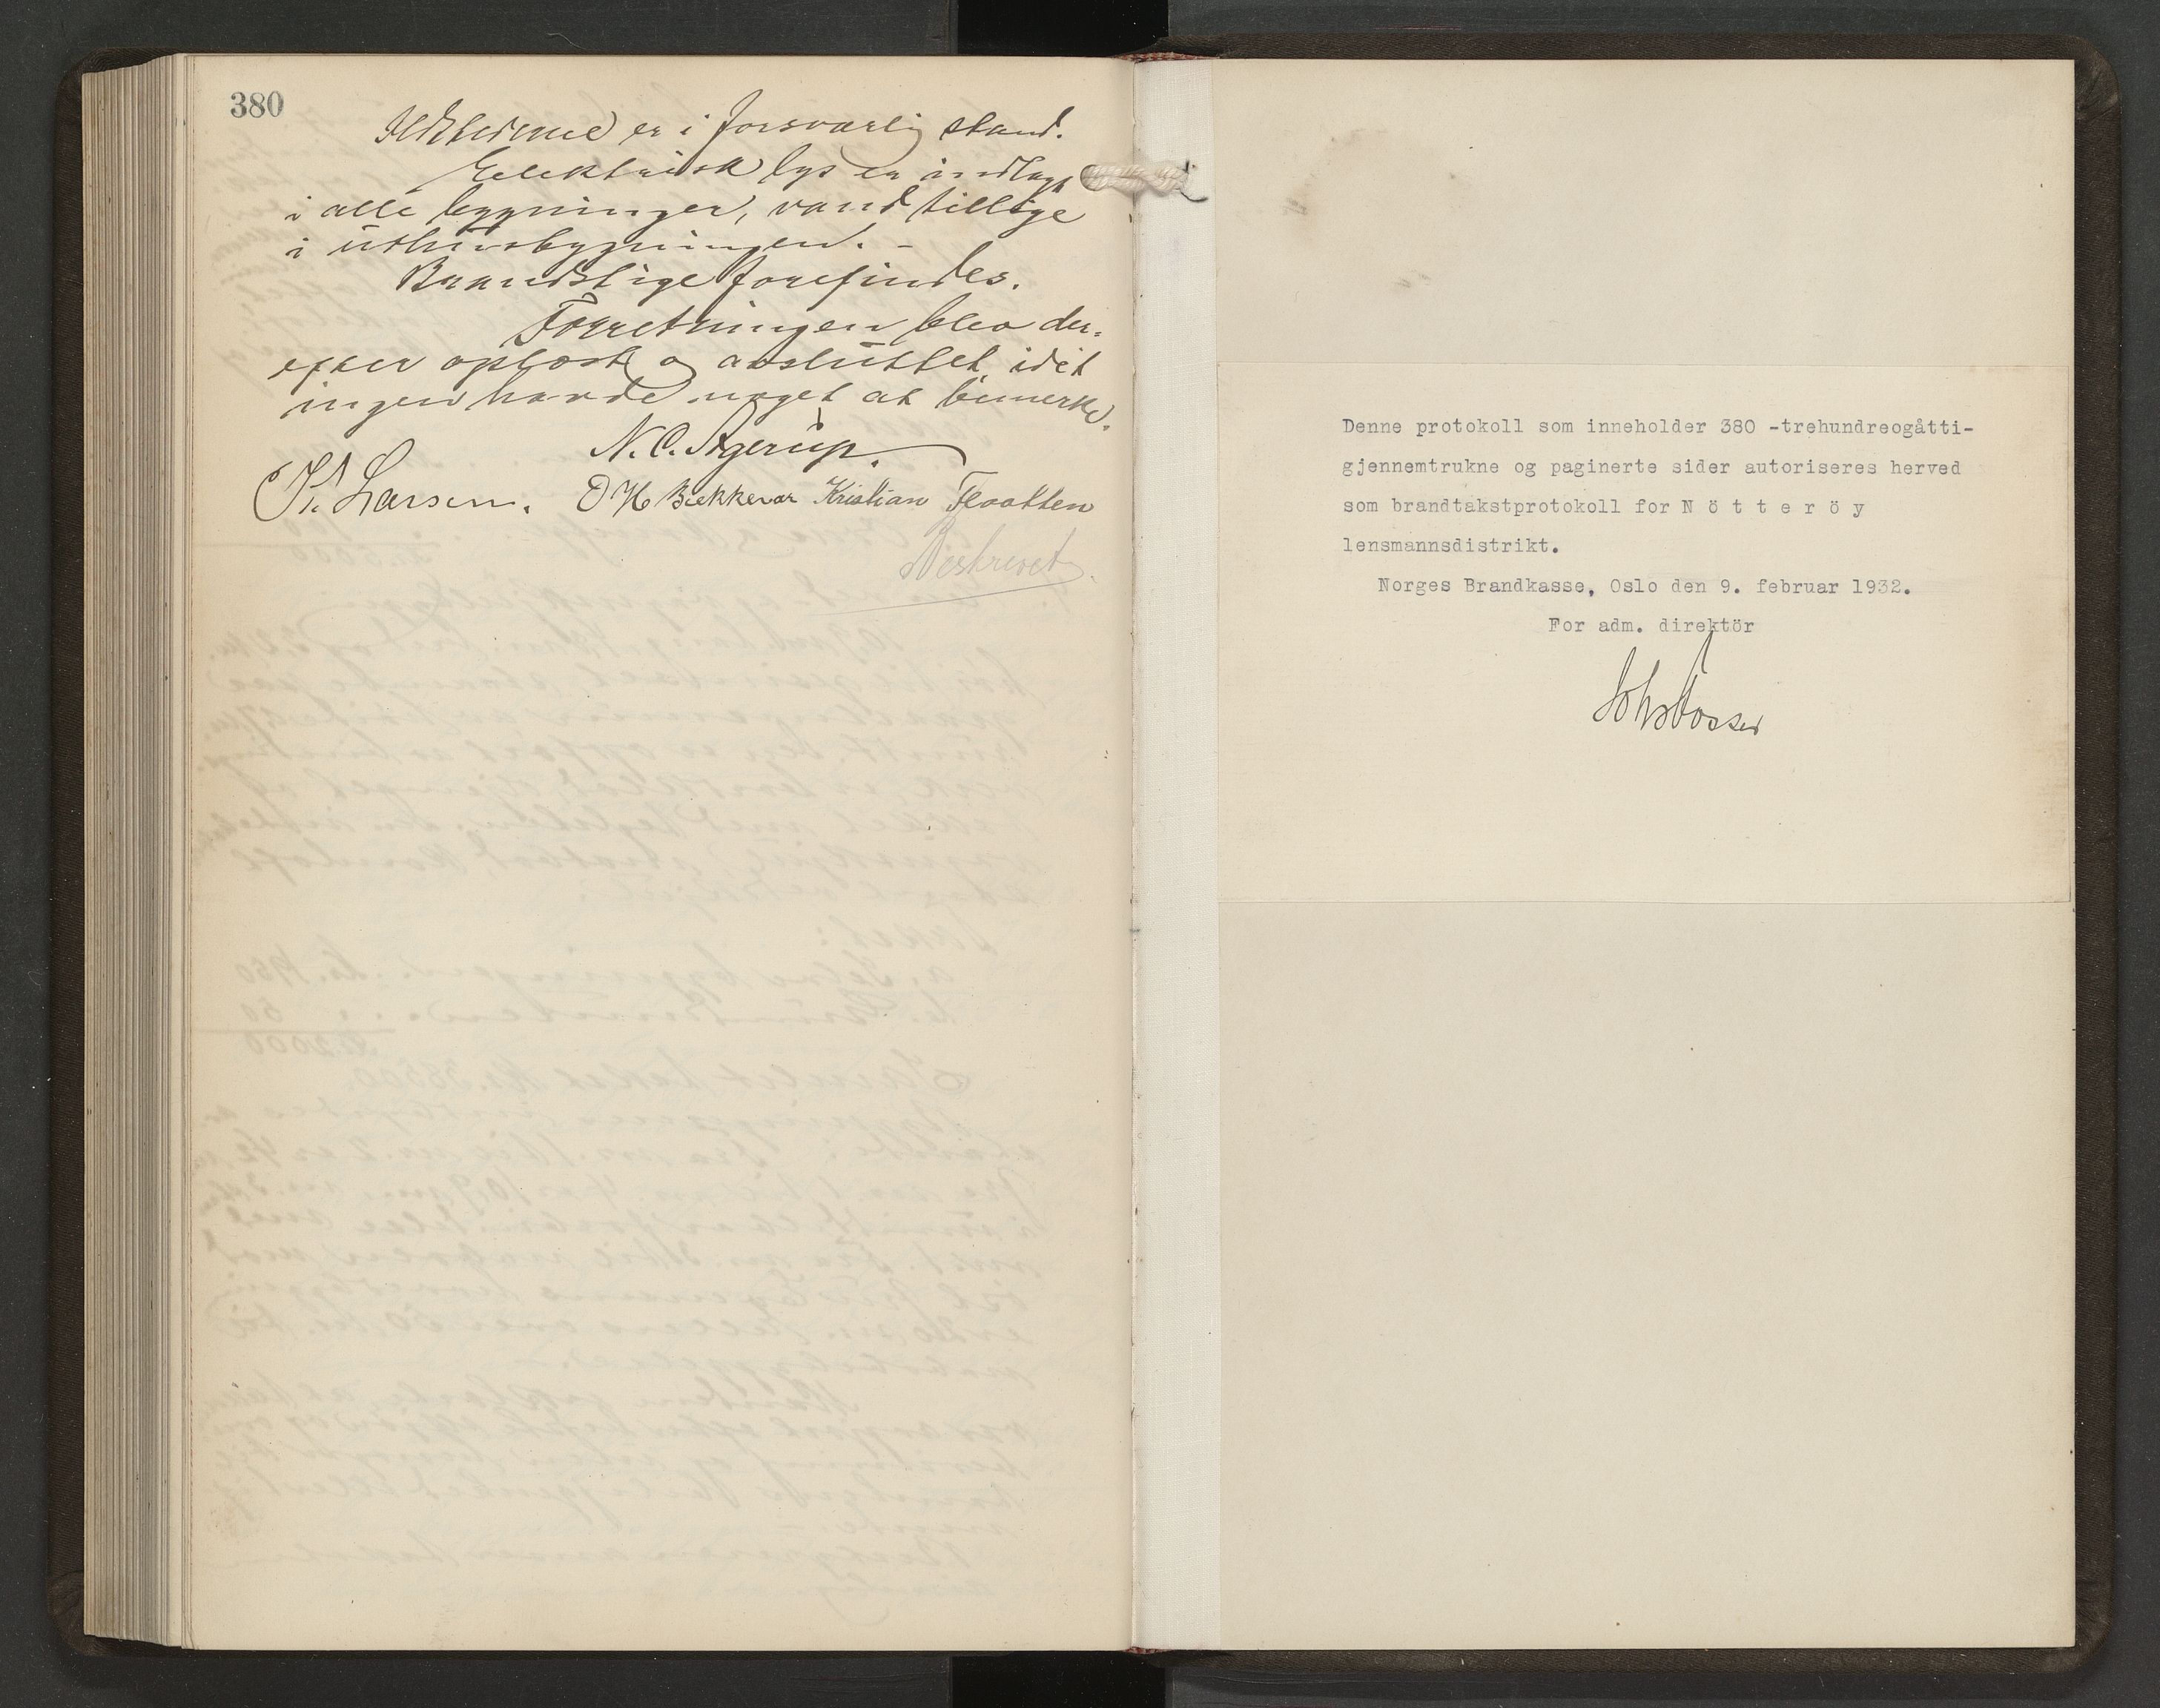 380
Ildstederne er i forsvarlig stand.
Elektrisk lys er indlagt
i alle bygninger, vand tillige
i uthusbygningen. -
Brandstige forefindes.
Forretningen blev der-
efter oplæst og avsluttet, idet
ingen havde noget at bemerke.
N. C. Agerup.
K. Larsen. O H Bekkevar Kristian Flaatten
Beskrevet.
Denne protokoll som inneholder 380 -trehundreogåtti-
gjennemtrukne og paginerte sider autoriseres herved
som brandtakstprotokoll for N ö t t e r ö y
lensmannsdistrikt.
Norges Brandkasse, Oslo den 9. februar 1932.
For adm. direktör